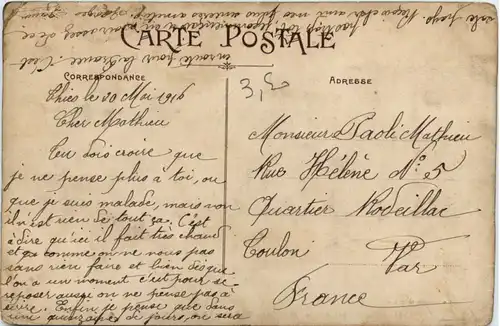 CARTE POSTALE
CORRESPONDANCE
ADRESSE
Thiès le 20 Mai 1916
Cher Mathieu
Tu dois croire que
je ne pense plus à toi, ou
que je suis malade, mais non
il n'est rien de tout ça. C'est
à dire qu'ici il fait très chaud
et ça comme on ne nous pas
sans rien faire et bien dès que
l'on a un moment c'est pour se
reposer aussi on ne pense pas à
écrire. Enfin je pense que dans
une quinzaine de jours, on sera
en route pour la France. C'est
3,E
Monsieur Paoli Mathieu
Rue Hélène N° 5
Quartier Rodeillac
Toulon
Var
France